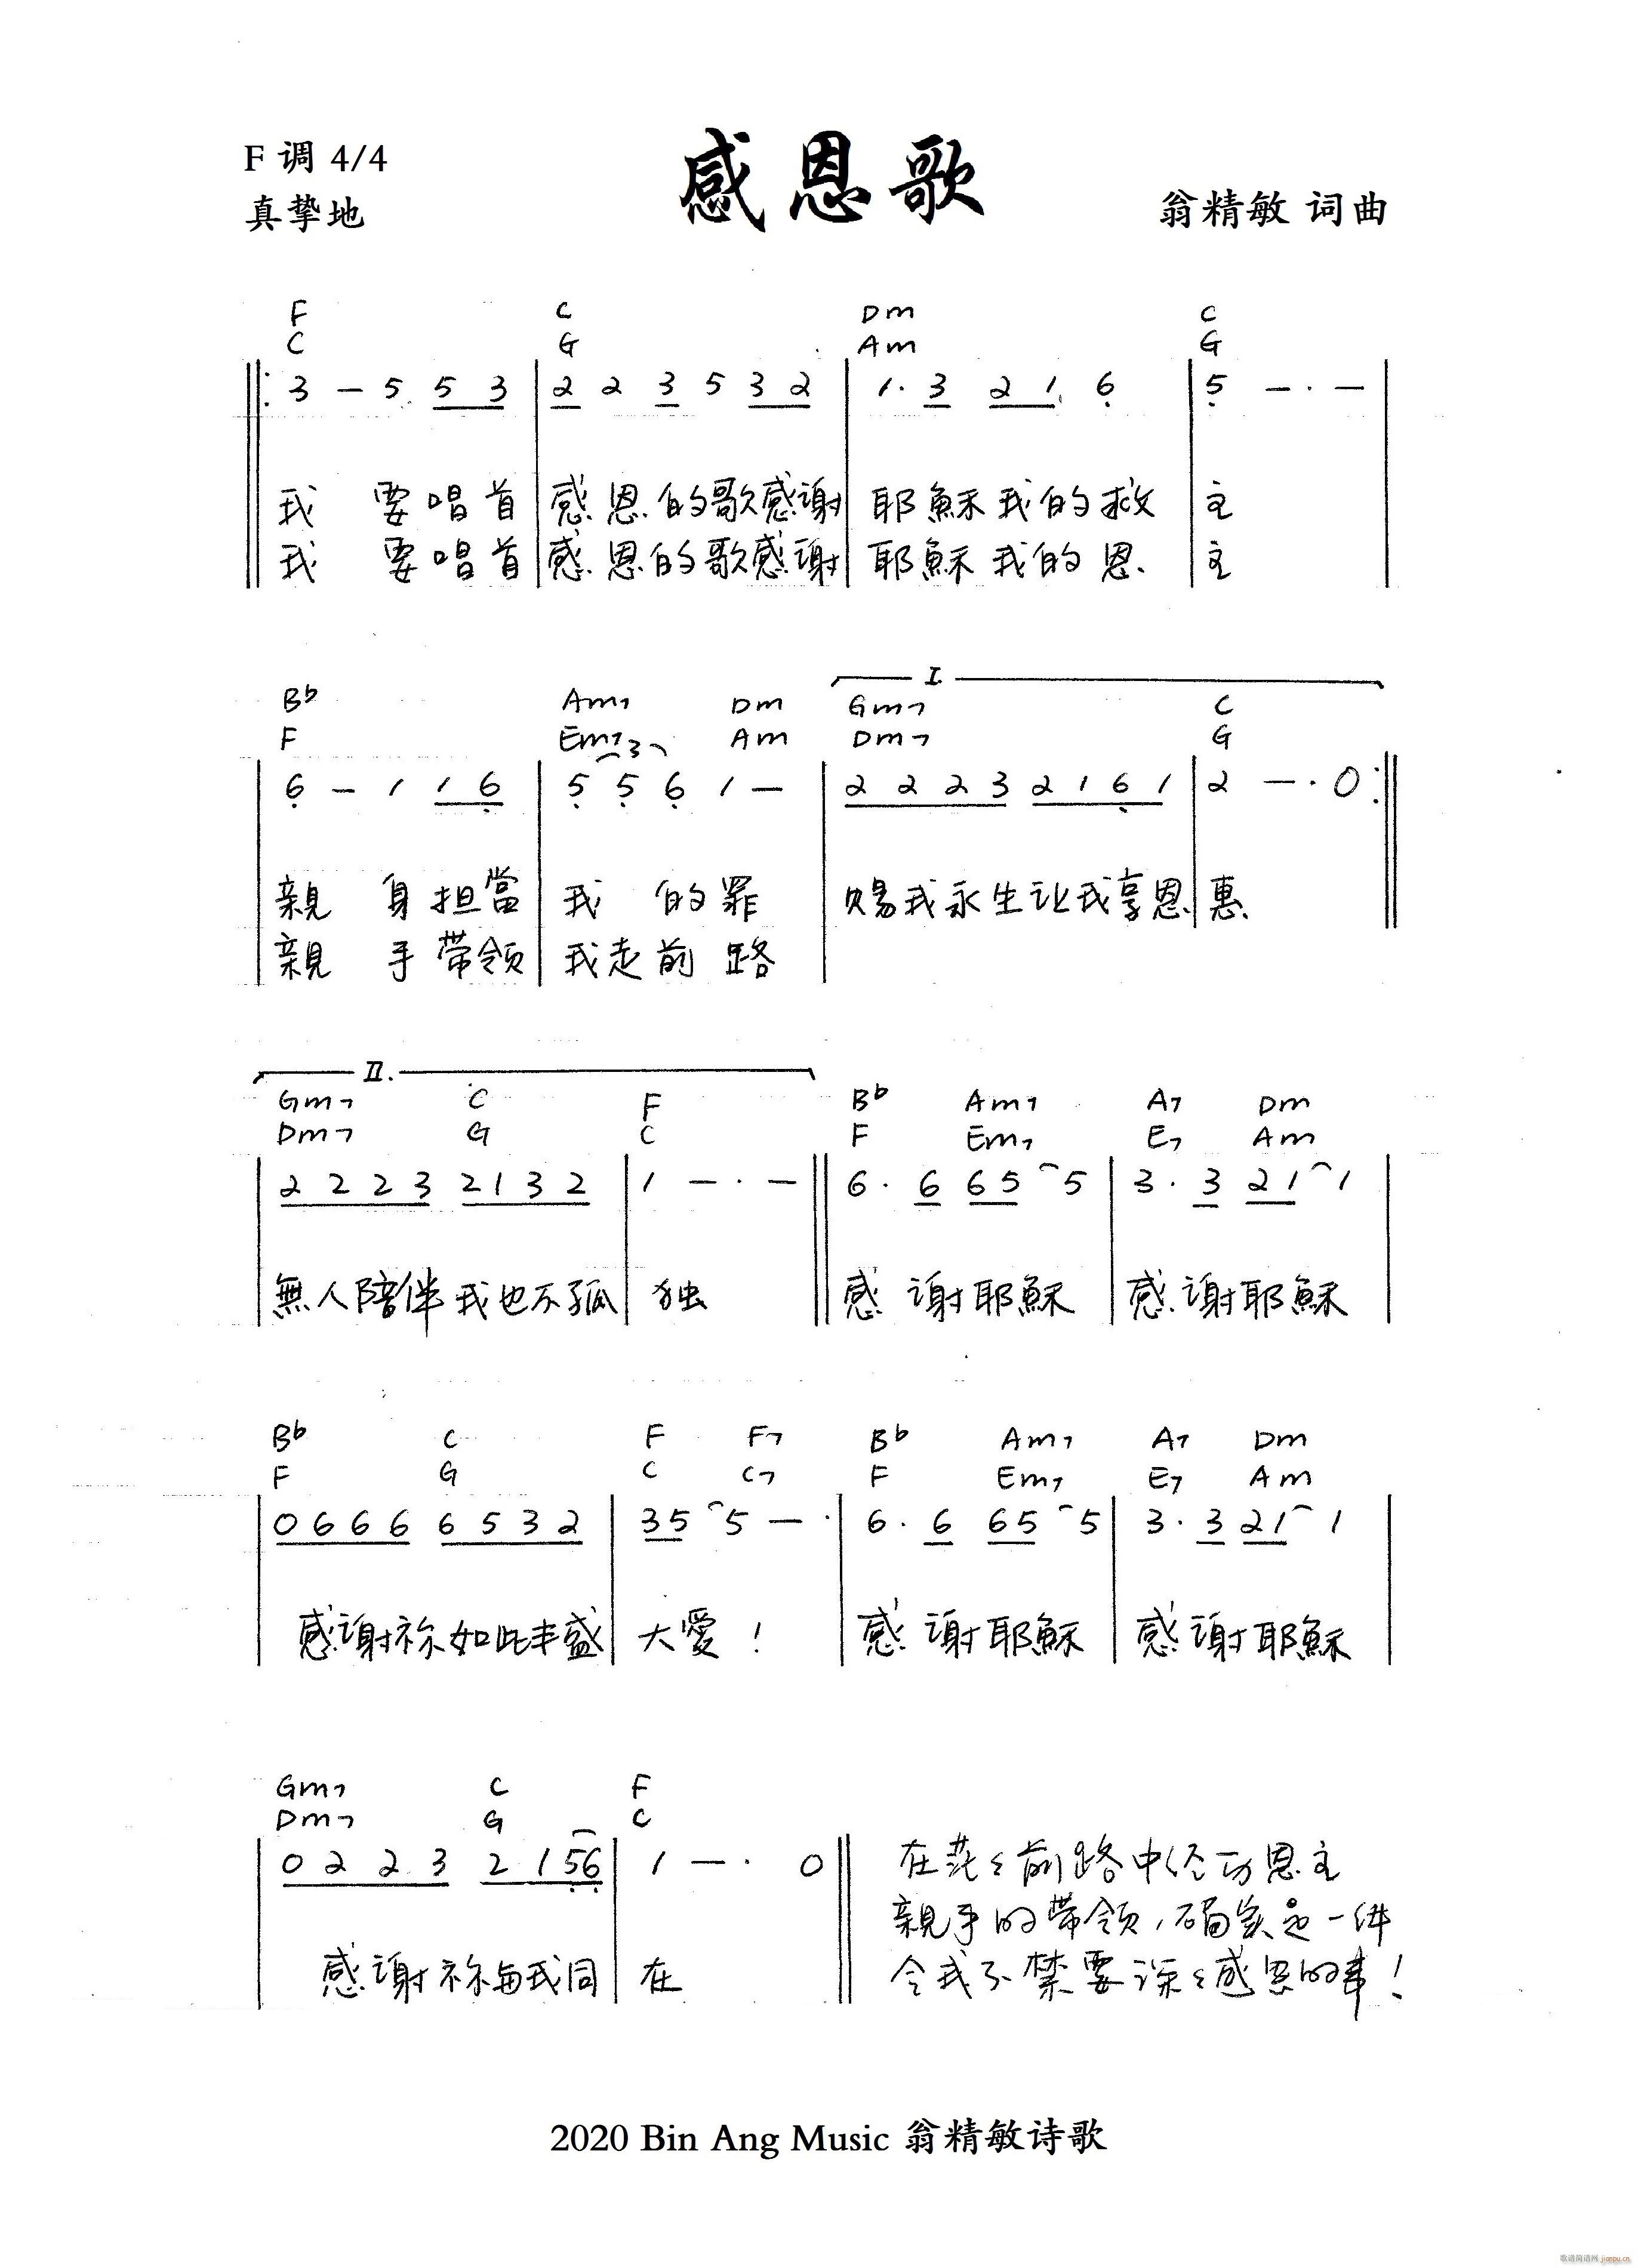 感恩歌
F 调 4/4
真挚地
翁精敏 词曲
F C Dm C
C G Am G
3 - 5 5 3 | 2 2 3 5 3 2 | 1. 3 2 1 6 | 5 - · -
我 要唱首 感恩的歌感谢 耶穌我的救 主
我 要唱首 感恩的歌感谢 耶穌我的恩 主
I.
B♭ Am7 Dm Gm7 C
F Em7 Am Dm7 G
3
6 - 1 1 6 | 5 5 6 1 - | 2 2 2 3 2 1 6 1 | 2 - · 0
親 身担當 我 的罪 赐我永生让我享恩 惠
親 手带领 我走前路
II.
Gm7 C F B♭ Am7 A7 Dm
Dm7 G C F Em7 E7 Am
2 2 2 3 2 1 3 2 | 1 - · - || 6 · 6 6 5 5 | 3 · 3 2 1 1
無人陪伴我也不孤 独 感谢耶穌 感谢耶穌
B♭ C F F7 B♭ Am7 A7 Dm
F G C C7 F Em7 E7 Am
0 6 6 6 6 5 3 2 | 3 5 5 - · | 6 · 6 6 5 5 | 3 · 3 2 1 1
感谢祢如此丰盛 大愛！ 感谢耶穌 感谢耶穌
Gm7 C F
Dm7 G C
0 2 2 3 2 1 5 6 | 1 - · 0
感谢祢与我同 在
在茫々前路中经历恩主
親手的带领，确实是一件
令我不禁要深々感恩的事！
2020 Bin Ang Music 翁精敏诗歌
歌谱简谱网 jianpu.cn